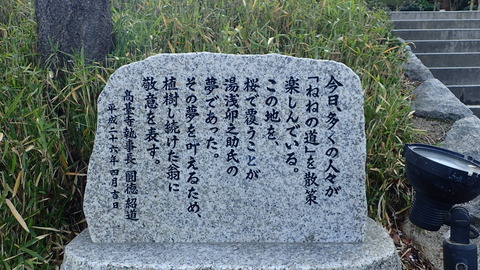 今日、多くの人々が
「ねねの道」を散策
楽しんでいる。
この地を、
桜で覆うことが
湯浅卯之助氏の
夢であった。
その夢を叶えるため、
植樹し続けた翁に
敬意を表す。
高臺寺執事長 圓德 紹道
平成二十六年 四月吉日